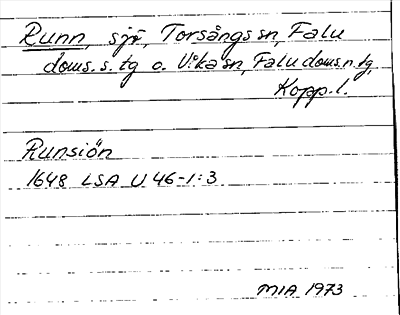 Runn, sjö, Torsångs sn, Falu
doms.s.tg o. Vika sn, Falu doms.n.tg,
Kopp.l.
Runsiön
1648 LSA U 46-1:3
MIA 1973